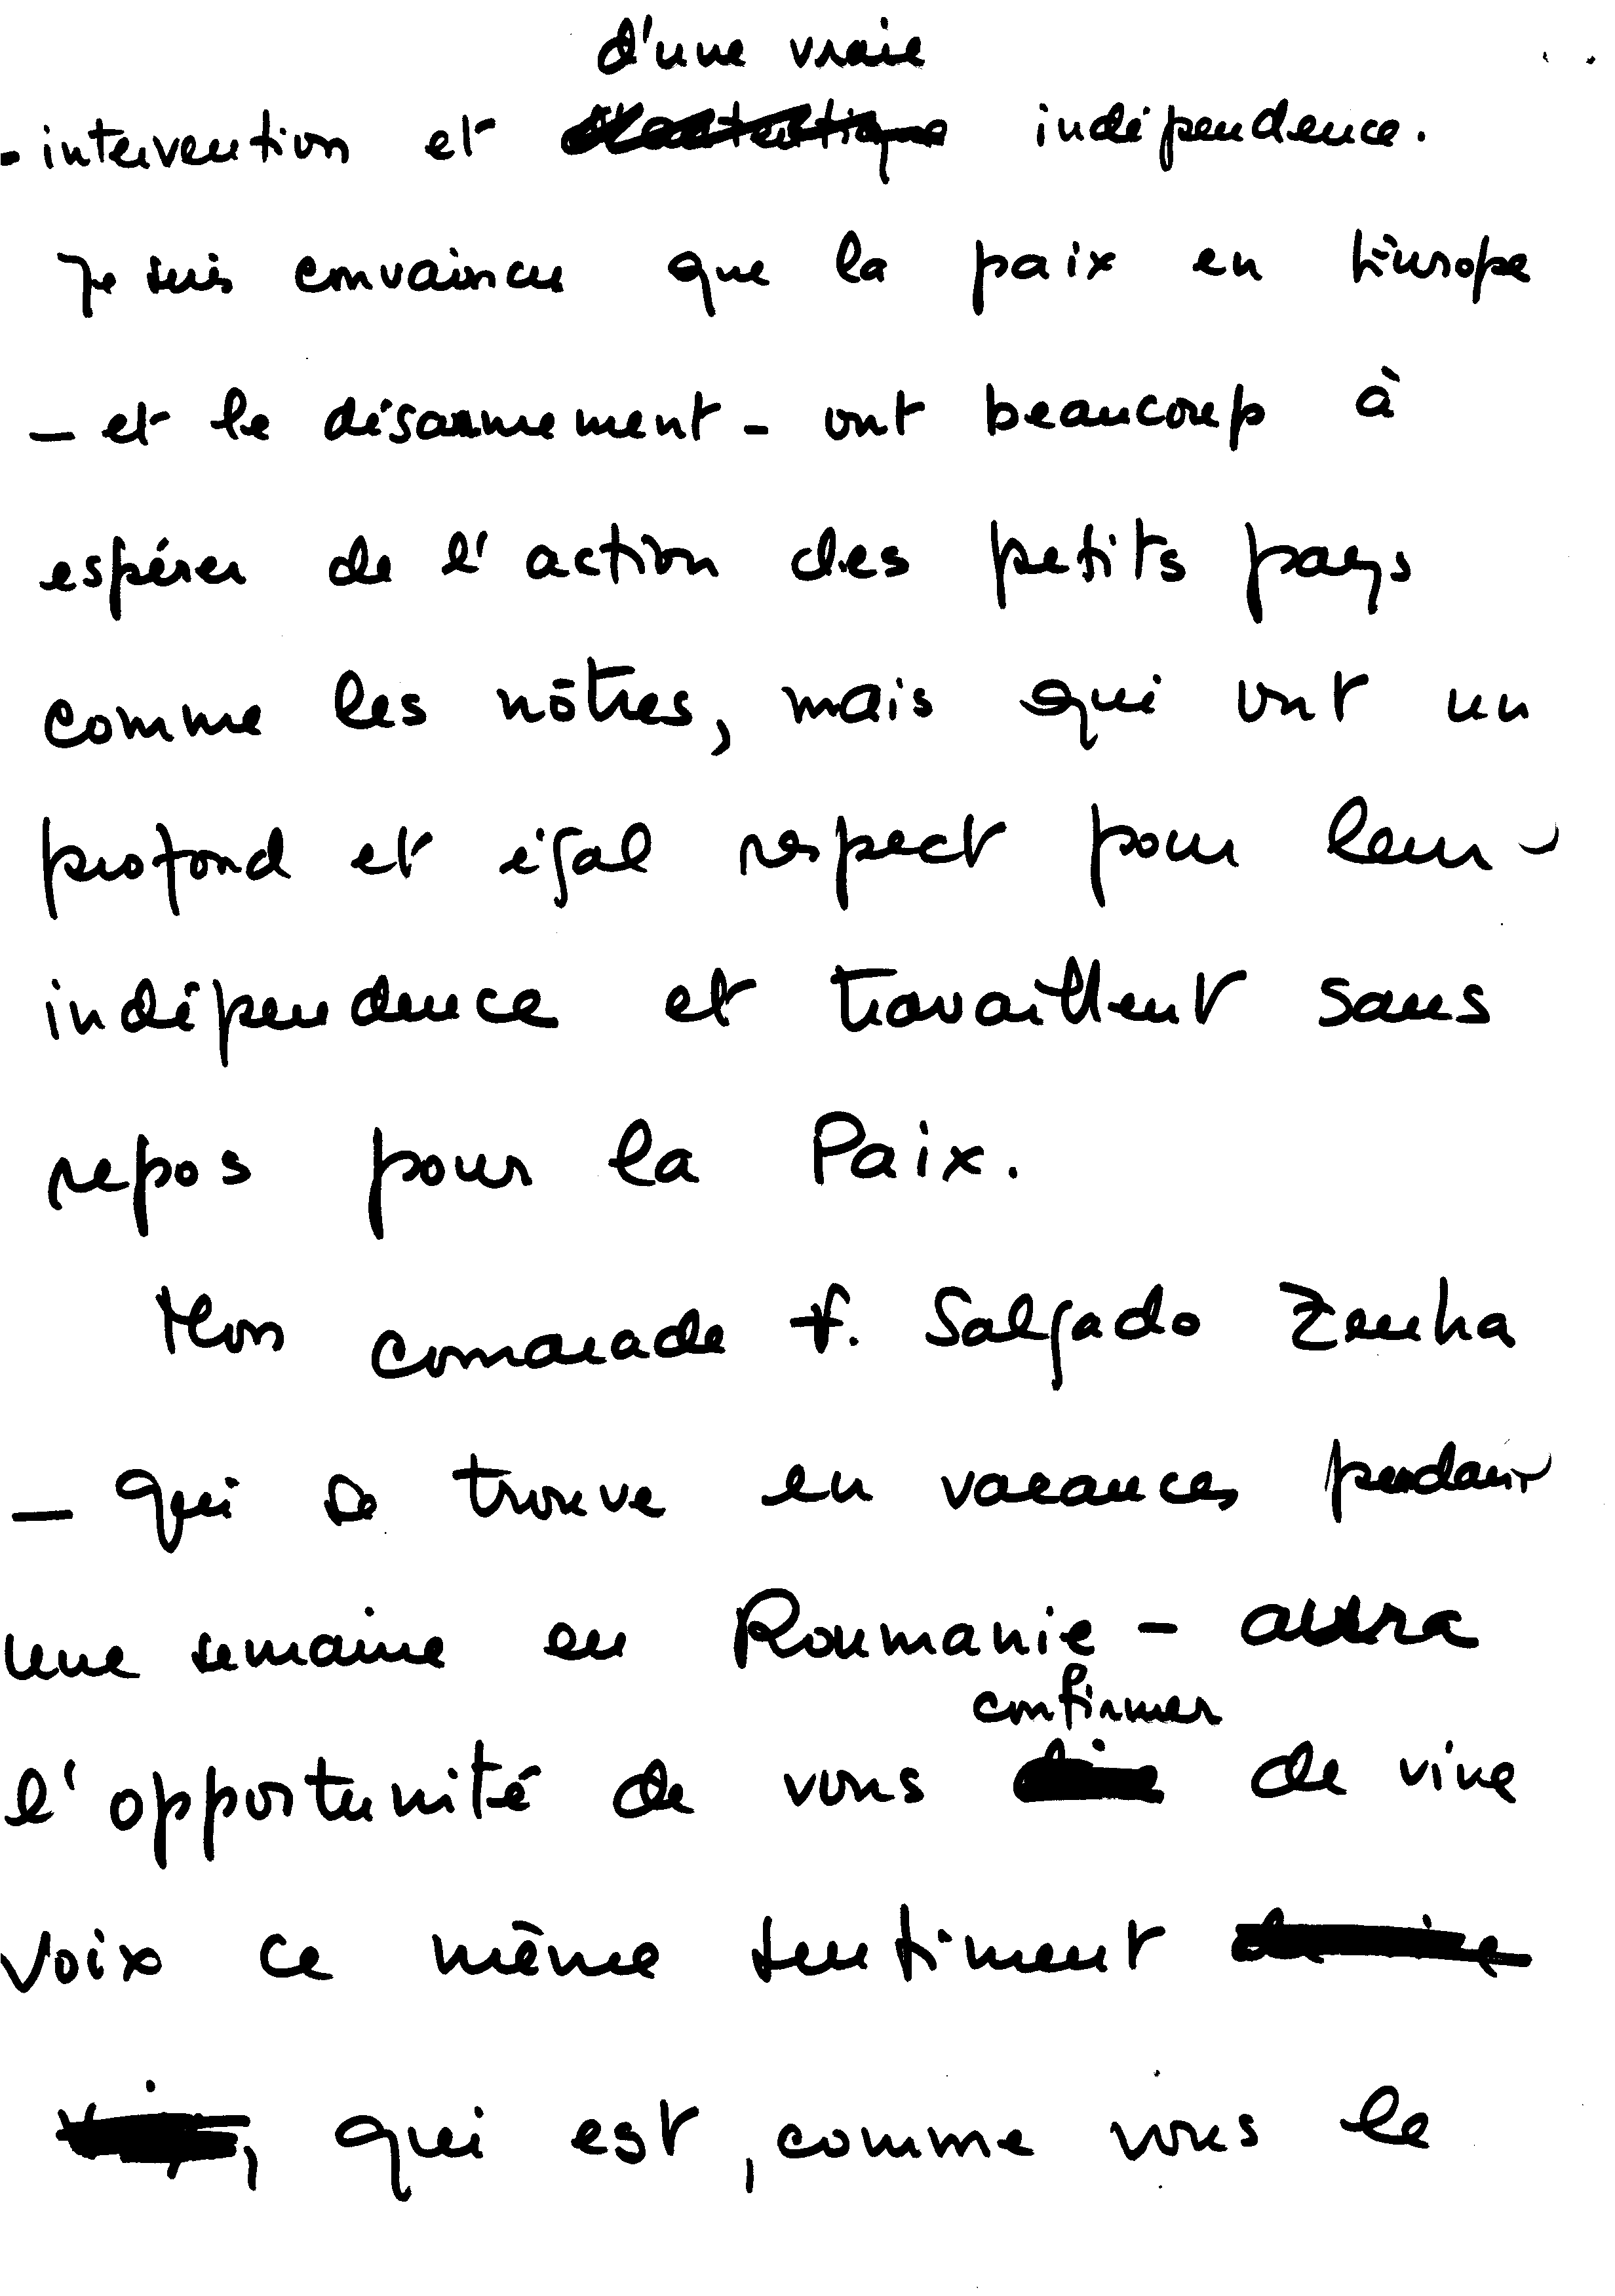 d'une vraie
-intervention et indépendence.
Je suis convaincu que la paix en Europe
- et le désarmement - ont beaucoup à
espérer de l'action des petits pays
comme les nôtres, mais qui ont un
profond et égal respect pour leur
indépendence et travaillent sans
repos pour la Paix.
Mon camarade F. Salgado Zenha
- qui se trouve en vacances pendant
une semaine en Roumanie - aura
confirmer
l'opportunité de vous dire de vive
voix ce même sentiment de vive
voix, qui est, comme vous le